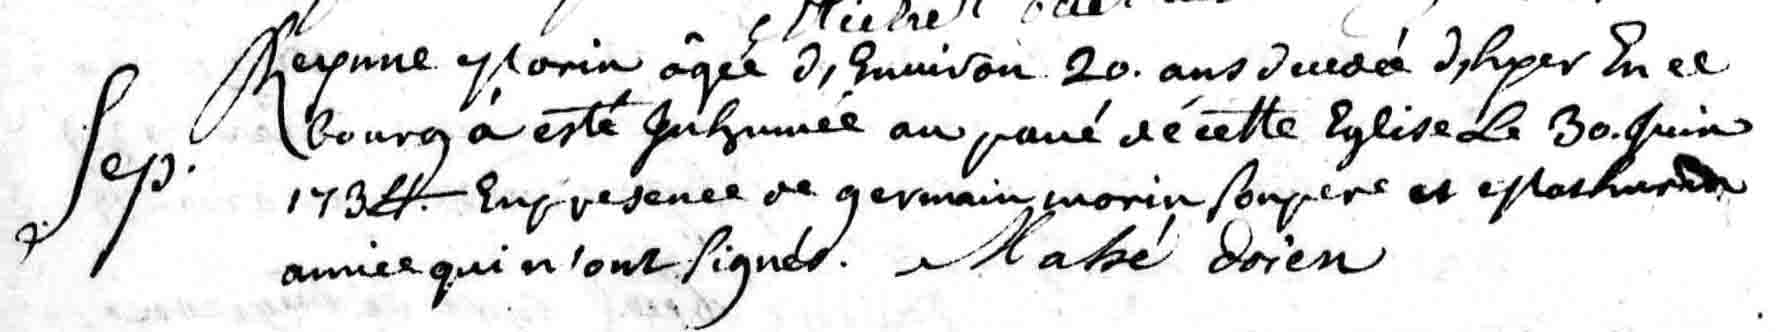 Sep.
Reynne Morin âgée d'Environ 20. ans decedée d'hyer En ce
bourg á esté Inhumée au pavé de cette Eglise Le 30. Juin
1734. En presence de germain morin son pere et Mathurin
amice qui n'ont signés. Mahé doien